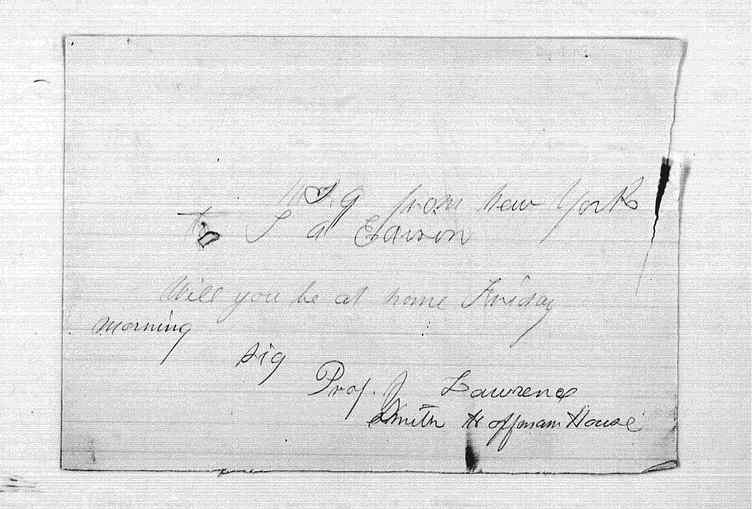 Msg from New York
To T a Edison
Will you be at home Friday
morning
sig
Prof. J Lawrence
Smith Hoffman House